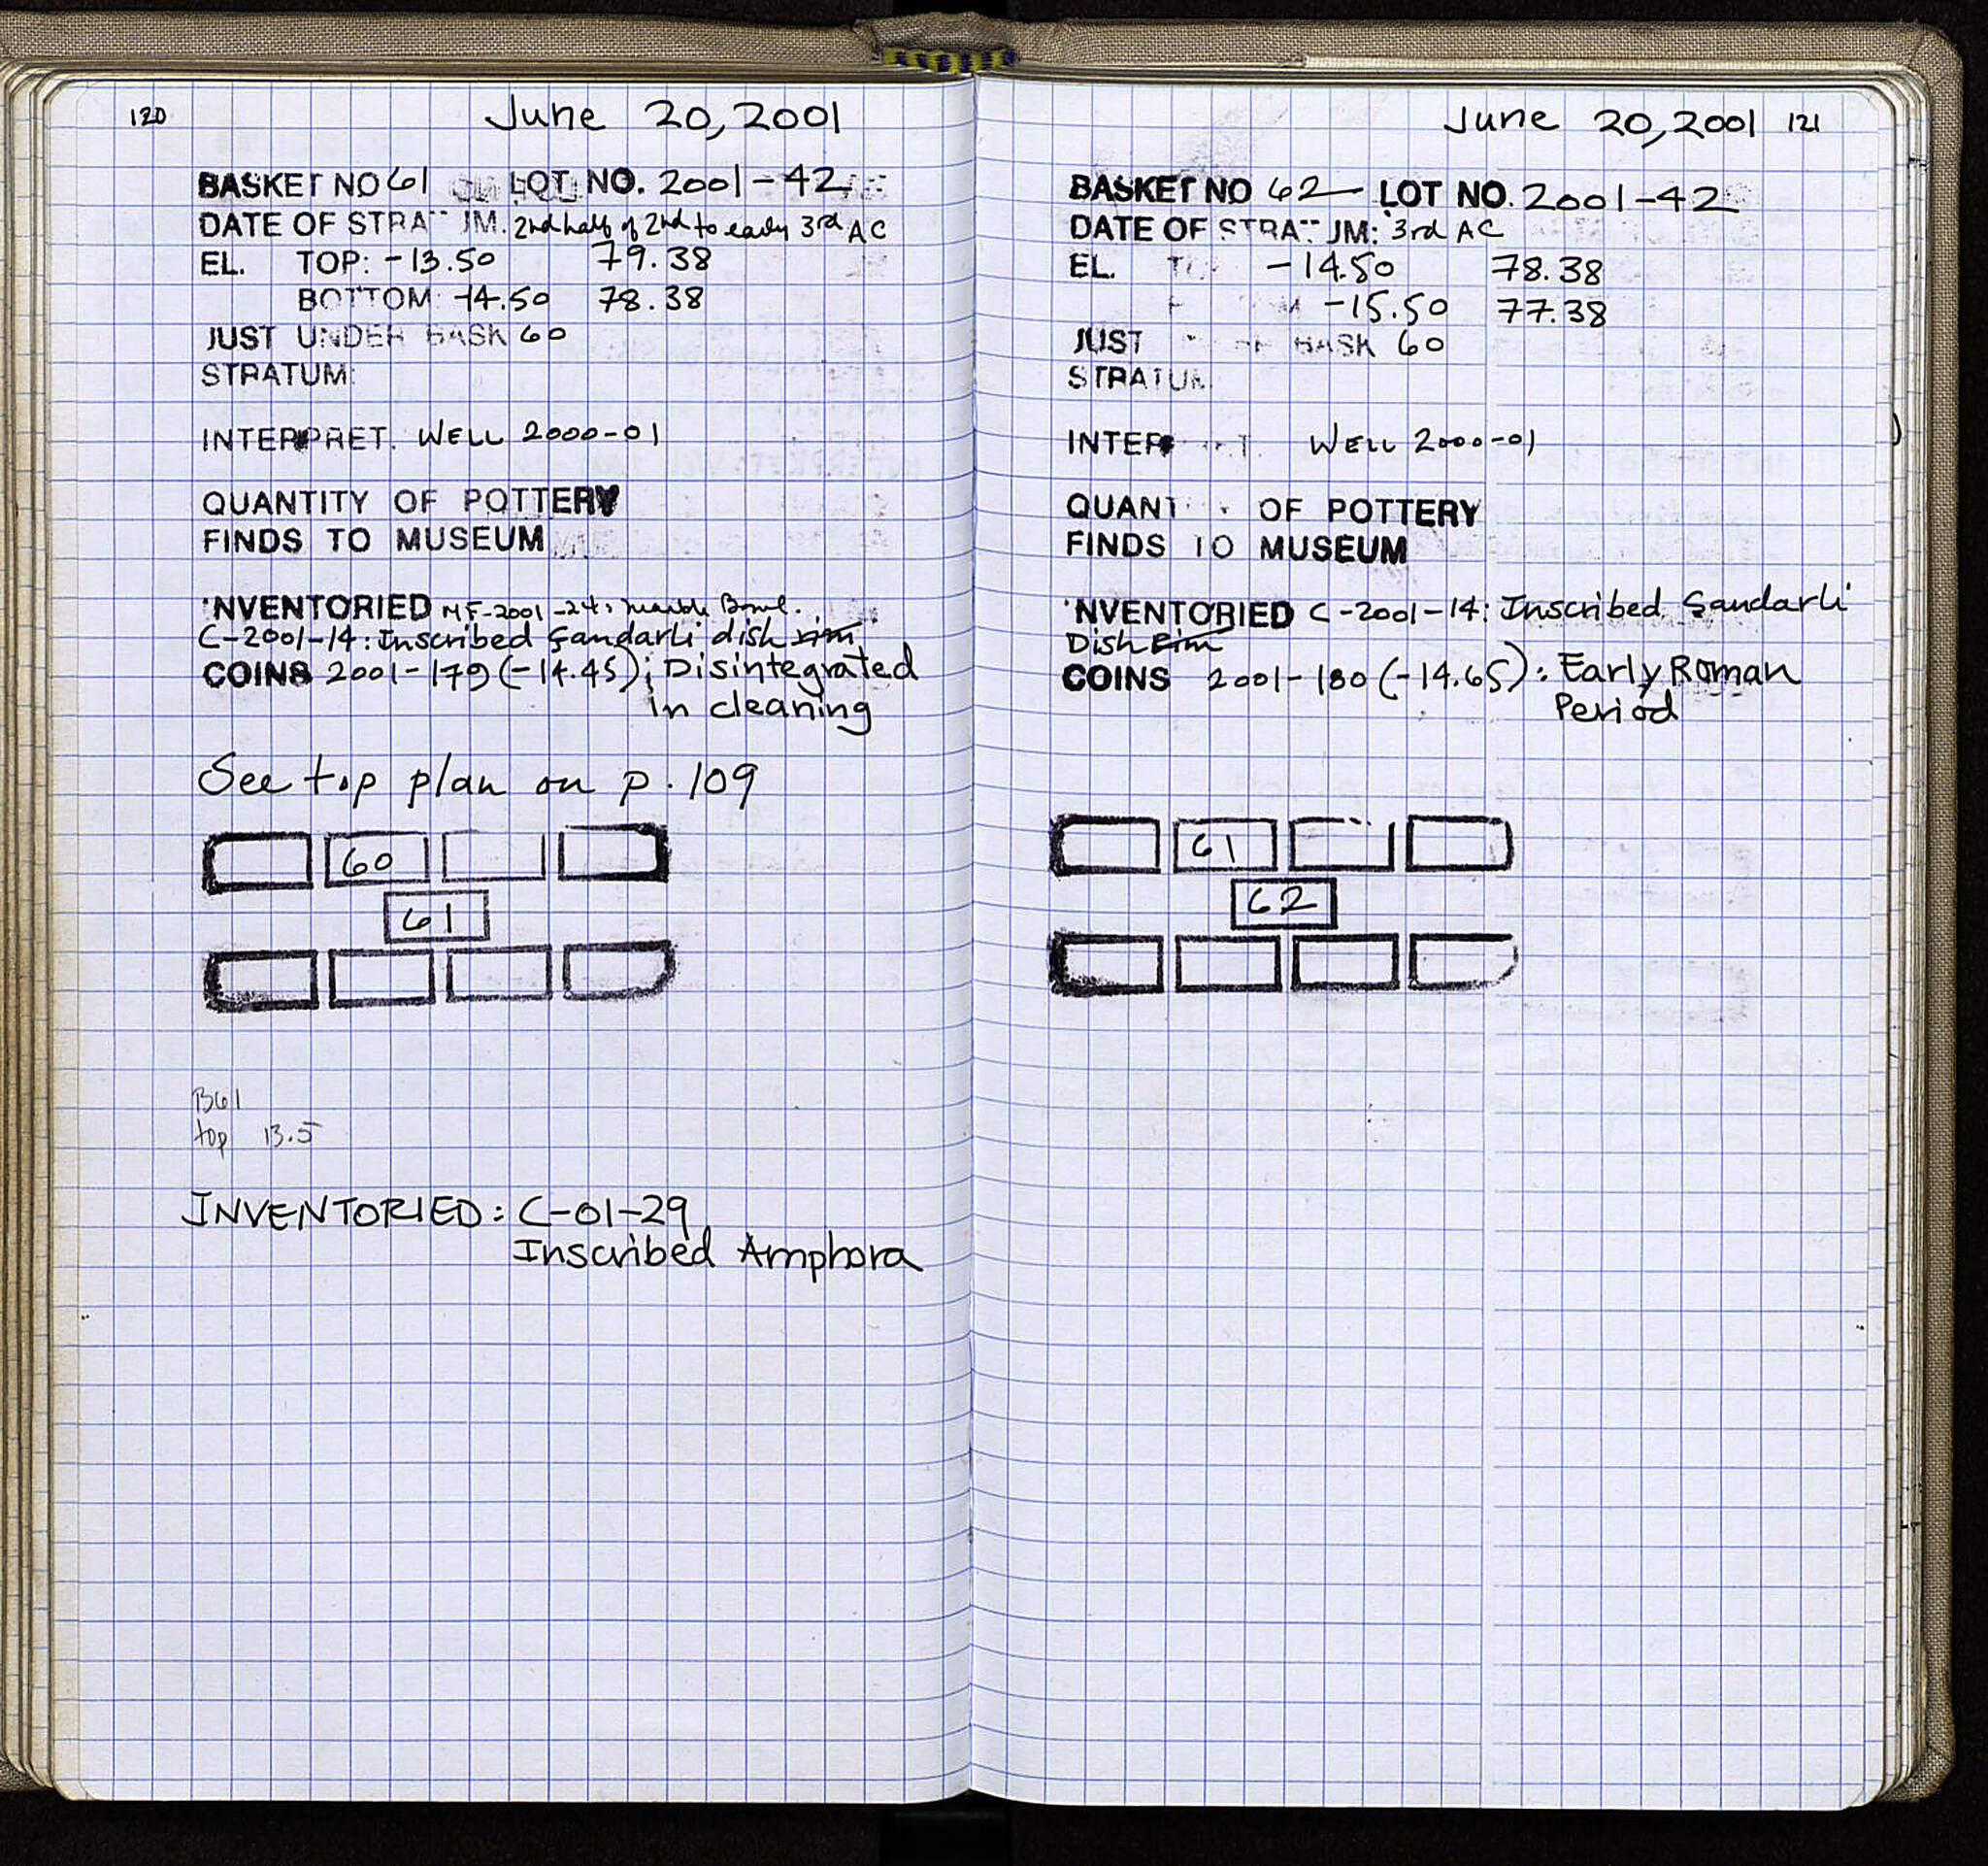 120
June 20, 2001
BASKET NO 61 LOT NO. 2001-42
DATE OF STRATUM. 2nd half of 2nd to early 3rd AC
EL. TOP: -13.50 79.38
BOTTOM: -14.50 78.38
JUST UNDER BASK 60
STRATUM:
INTERPRET. WELL 2000-01
QUANTITY OF POTTERY
FINDS TO MUSEUM
INVENTORIED MF-2001-24: Marble Bowl.
C-2001-14: Inscribed Çandarli dish rim
COINS 2001-179 (-14.45); Disintegrated
in cleaning
See top plan on p. 109
60
61
B61
top 13.5
INVENTORIED: C-01-29
Inscribed Amphora
June 20, 2001 121
BASKET NO 62 LOT NO. 2001-42
DATE OF STRATUM: 3rd AC
EL. -14.50 78.38
-15.50 77.38
JUST BASK 60
STRATUM
INTER T. WELL 2000-01
QUANT OF POTTERY
FINDS TO MUSEUM
INVENTORIED C-2001-14: Inscribed Çandarli
Dish Rim
COINS 2001-180 (-14.65): Early Roman
Period
61
62